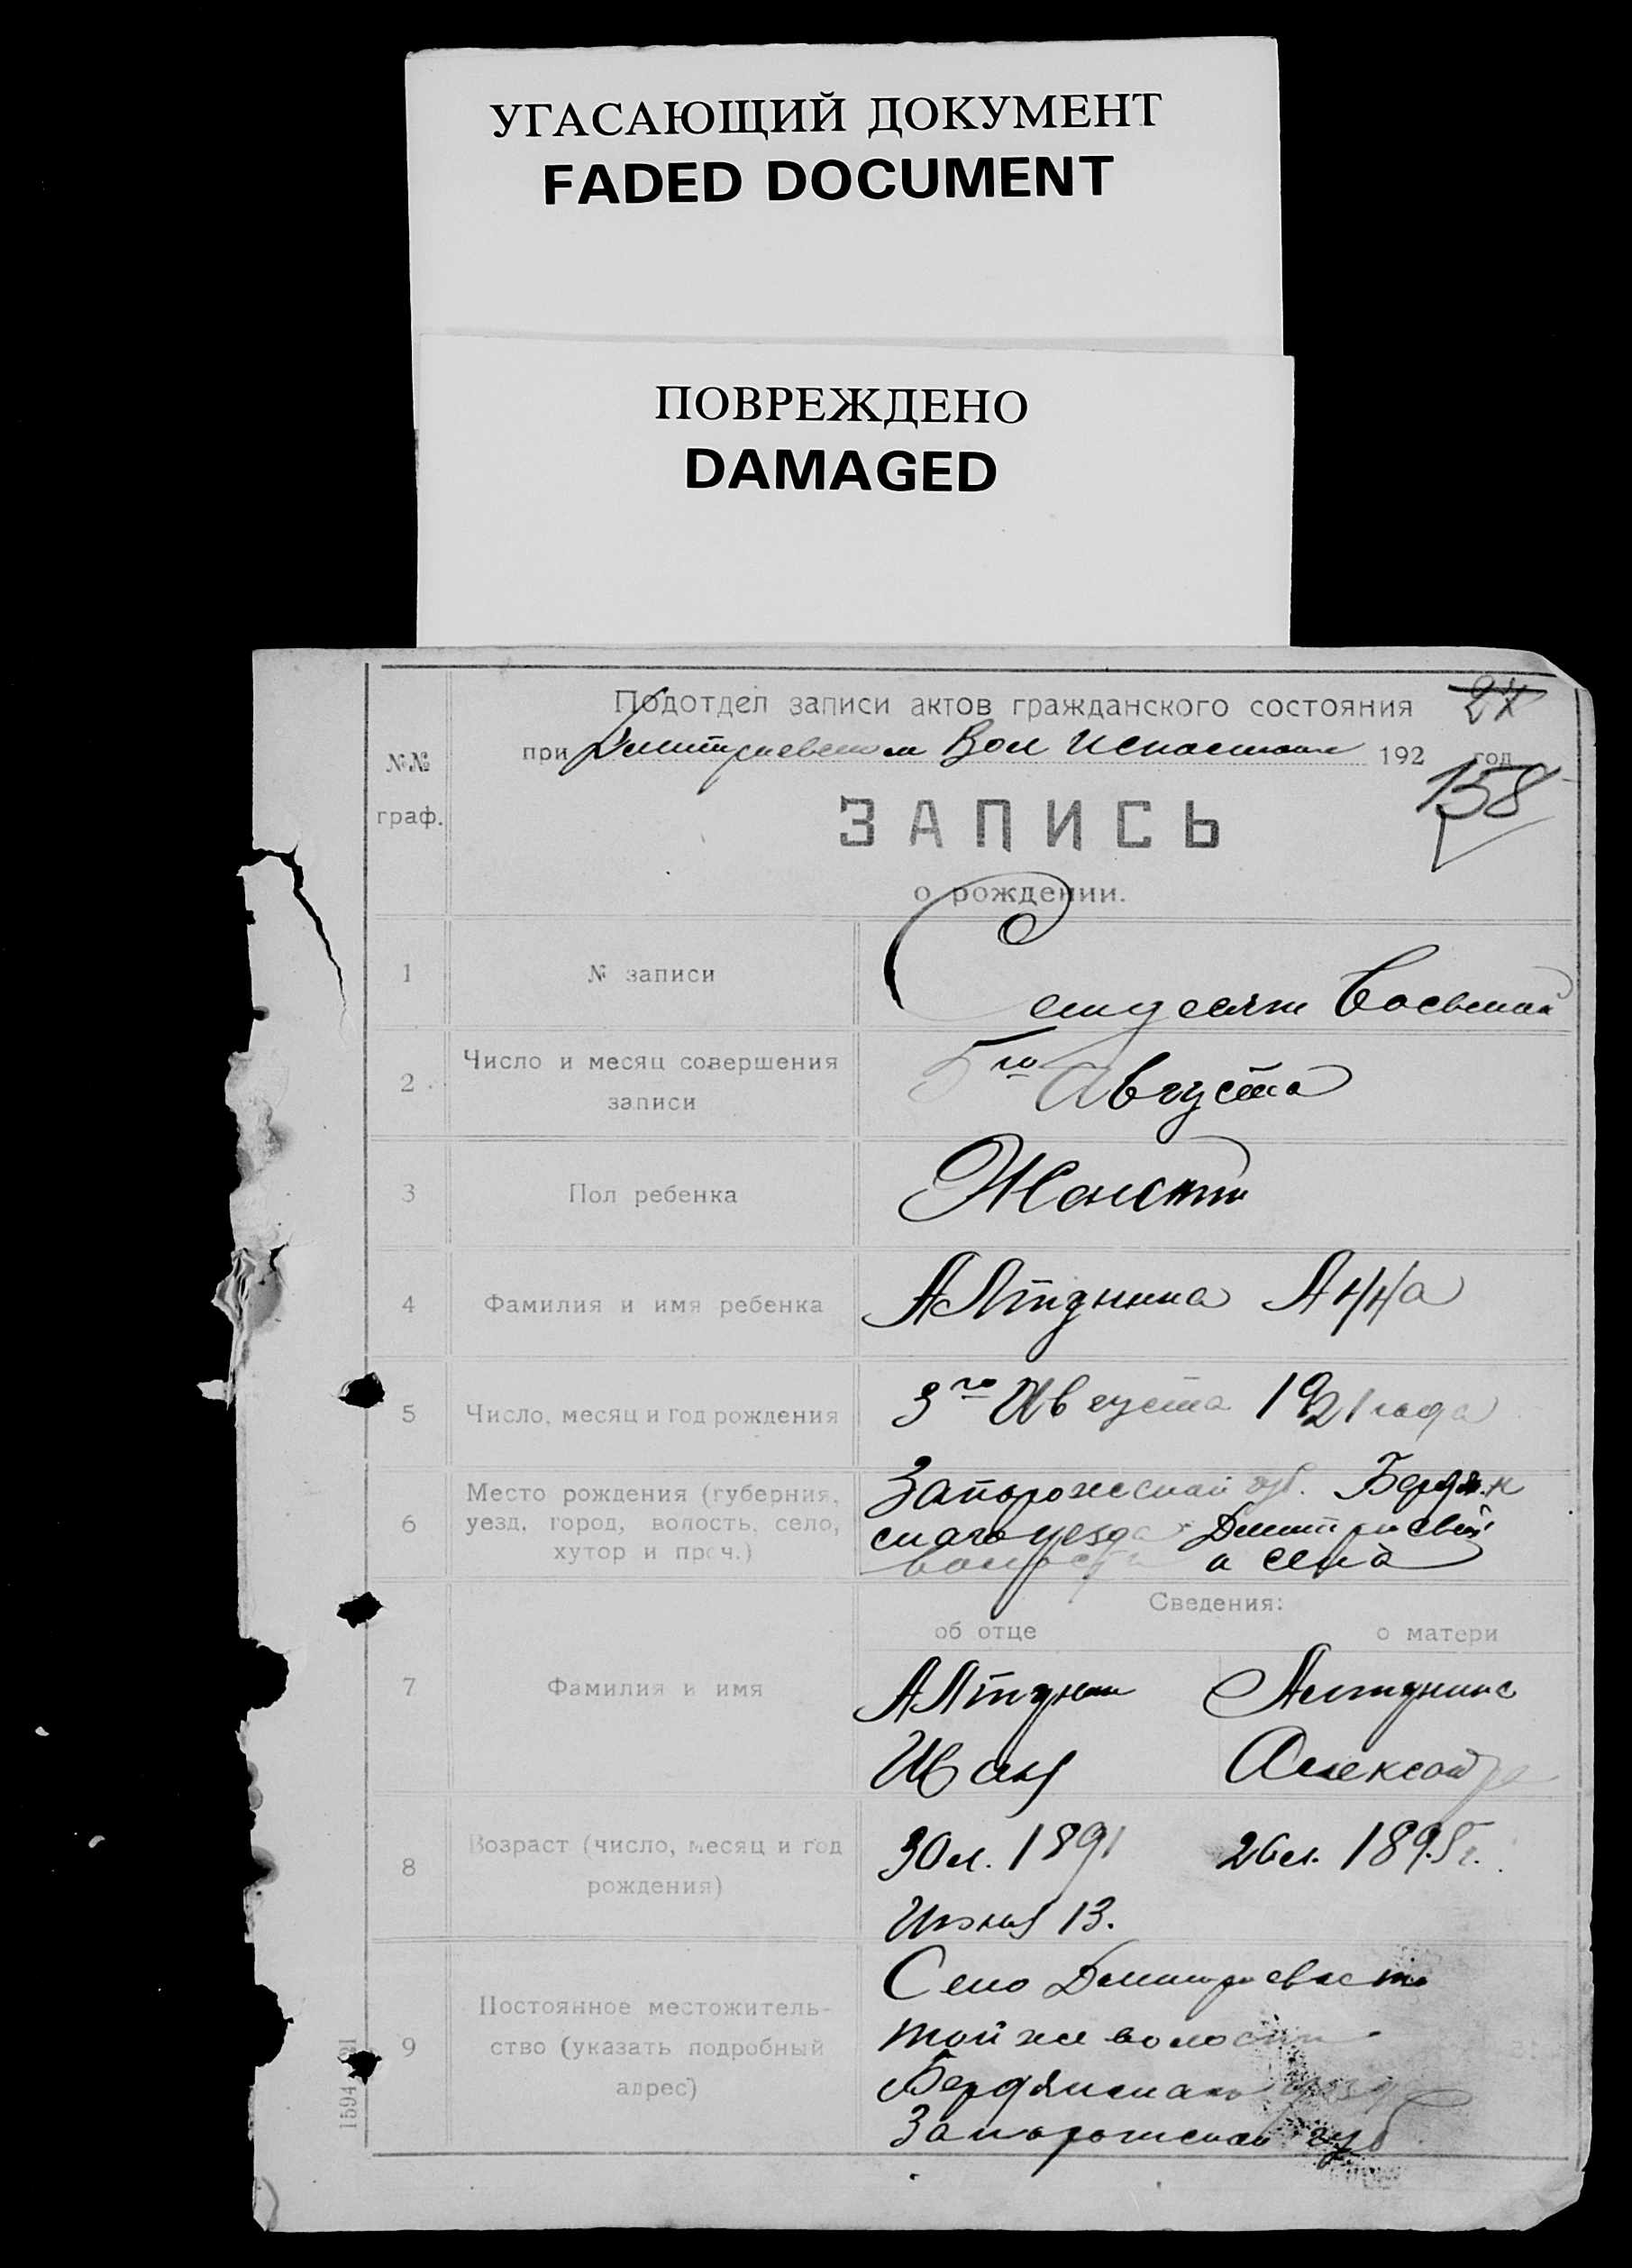 УГАСАЮЩИЙ ДОКУМЕНТ
FADED DOCUMENT
ПОВРЕЖДЕНО
DAMAGED
Подотдел записи актов гражданского состояния 24
при Дмитриевском Вол 192 год
158
№№
граф.
ЗАПИСЬ
о рождении.
1 № записи Семдесят Восьмой
2 Число и месяц совершения записи 5го Августа
3 Пол ребенка
4 Фамилия и имя ребенка Алтунина Анна
5 Число, месяц и год рождения 3го Августа 1921 года
6 Место рождения (губерния, Запорожской губ. Бердян
уезд, город, волость, село, скаго уезда Дмитриевской
хутор и проч.) волости и села
Сведения:
об отце о матери
7 Фамилия и имя Алтунин Алтунина
Иван Александра
8 Возраст (число, месяц и год 30 л. 1891 26 л. 1895 г.
рождения) Июня 13.
9 Постоянное местожитель- Село
ство (указать подробный той же волости
адрес) Бердянскаго уезда
Запорожской губ
1594